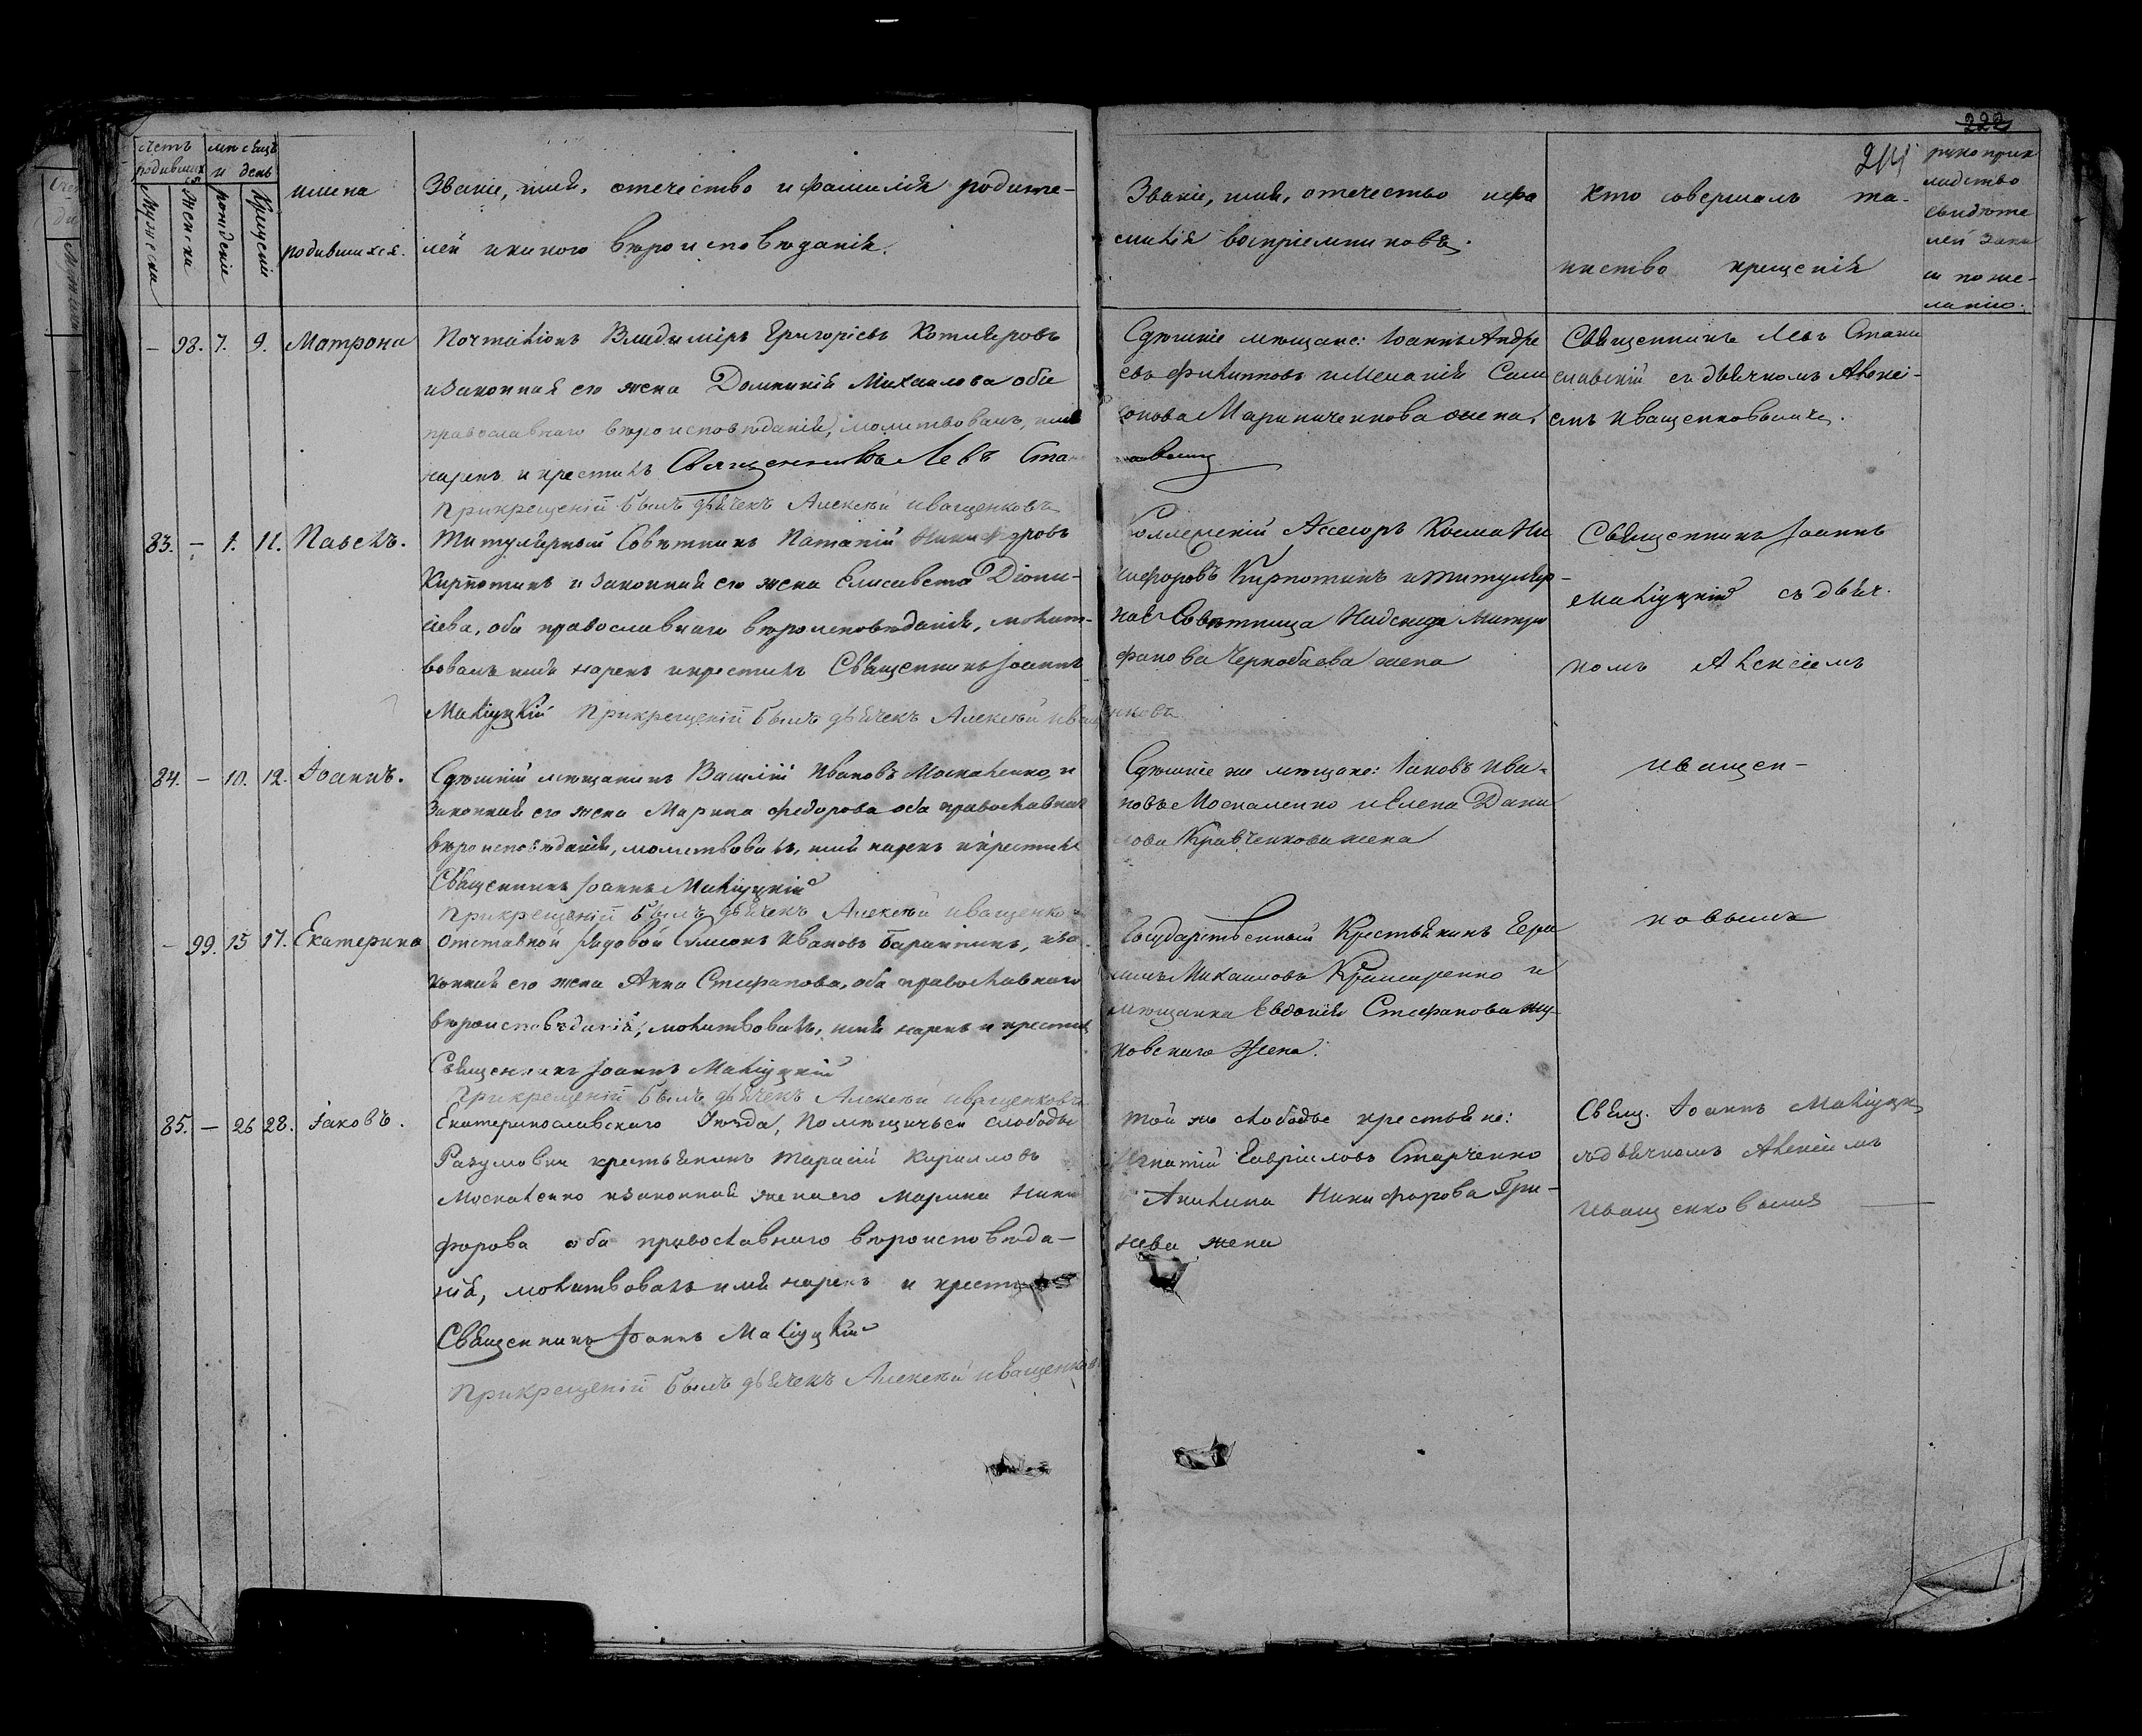 222
214
счетъ родившихся
мѣсяцъ и день
Мужеска
Женска
рожденіе
Крещеніе
имена
родившихся.
Званіе, имя, отечество и фамилія родите-
лей и какого вѣроисповѣданія.
Званіе, имя, отечество и фа
милія воспріемниковъ.
Кто совершалъ та-
инство крещенія
рукоприк
ладство
свидѣте
лей запи
си по же-
ланію.
— 98. 7. 9. Матрона
Почталіонъ Владиміръ Григорієвъ Котляровъ
и законная его жена Домникія Михаилова оба
православнаго вѣроисповѣданія, молитвовалъ, имя
нарекъ и крестилъ Священникъ Левъ Ста
прикрещеніи былъ дьячекъ Алексѣй Иващенковъ
Сдѣшніе мѣщане: Іоаннъ Андре
евъ Филипповъ и Меланія Сам
сонова Мариниченкова жена.
Священникъ Левъ Стани
славскій съ дьячкомъ Алексі-
емъ Иващенковымъ.
83. — 1. 11. Павелъ.
Титулярный Совѣтникъ Паталій Никифоровъ
Кирпотинъ и законная его жена Елисавета Діони-
сіева, оба православнаго вѣроисповѣданія, молит-
вовалъ имя нарекъ и крестилъ Священникъ Іоаннъ
Маліуцкій прикрещеніи былъ дьячекъ Алексѣй Иващенковъ
Коллежскій Ассесоръ Косма Ни
кифоровъ Кирпотинъ и титуляр-
ная Совѣтница Надежда Митро
фанова Чернобаева жена
Священникъ Іоаннъ
Маліуцкій съ дьяч-
комъ Алексіемъ
84. — 10. 12. Іоаннъ.
Сдѣшній мѣщанинъ Василій Ивановъ Москаленко, и
законная его жена Марина Федорова оба православнаго
вѣроисповѣданія, молитвовалъ, имя нарекъ и крестилъ
Священникъ Іоаннъ Маліуцкій
прикрещеніи былъ дьячекъ Алексѣй Иващенко
Сдѣшніе же мѣщане: Іаковъ Ива-
новъ Москаленко и Елена Дани
лова Кравченкова жена
Иващен-
— 99. 15. 17. Екатерина
Отставной рядовой Симіонъ Ивановъ Барантинъ, и за
конная его жена Анна Стефанова, оба православнаго
вѣроисповѣданія, молитвовалъ, имя нарекъ и крестилъ
Священникъ Іоаннъ Маліуцкій
прикрещеніи былъ дьячекъ Алексѣй Иващенковъ
Государственный Крестьянинъ Гера
симъ Михаиловъ Крамаренко и
мѣщанка Евдокія Стефанова Жу-
ковскаго Жена.
ковымъ
85. — 26 28. Іаковъ.
Екатеринославскаго Уѣзда, помѣщичьей слободы
Разумовки крестьянинъ Тарасій Кирилловъ
Москаленко и законная жена его Марина Ники
форова оба православнаго вѣроисповѣда-
нія, молитвовалъ имя нарекъ и крестилъ
Священникъ Іоаннъ Маліуцкій
прикрещеніи былъ дьячекъ Алексѣй Иващенковъ
той же слободы крестьяне:
Игнатій Гавріиловъ Старченко
и Акилина Никифорова Гри-
нева жена
Свящ. Іоаннъ Маліуцкій
съ дьячкомъ Алексіемъ
Иващенковымъ